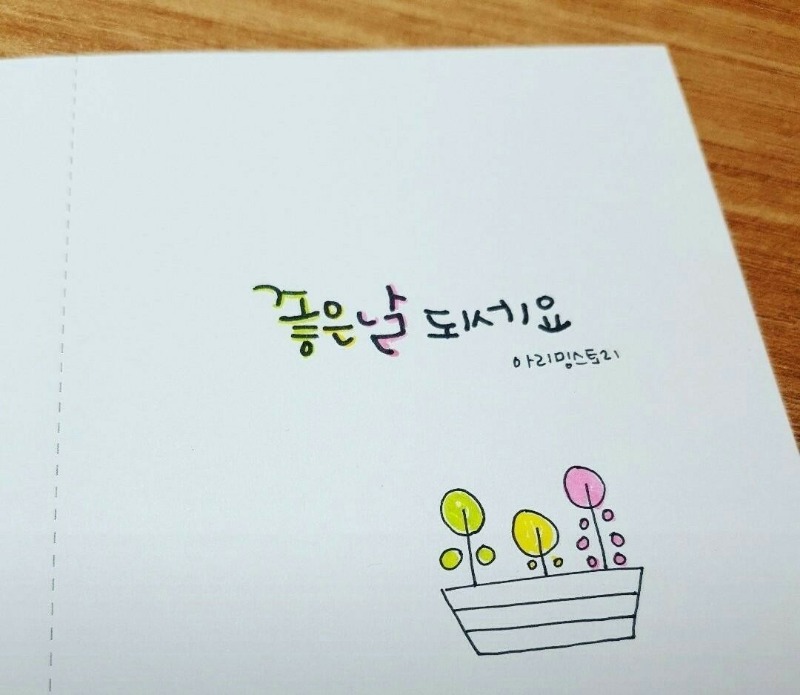 좋은날 되세요
아리밍스토리